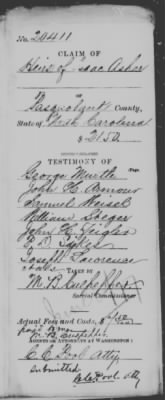 No. 20411
CLAIM OF
Heirs of Isac Asher
OF
Pasquotank County,
State of North Carolina
$ 2150.
TESTIMONY OF
George Murtle
John H. Armour
Samuel Weisel
William Seeger
John H. Zeigler
B. D. Sykes
Joseph Lawrence
TAKEN BY
M. B. Culpepper
Special Commissioner
Actual Fees and Costs, $
M. B. Culpepper
AGENTS OR ATTORNEYS AT WASHINGTON:
C. C. Pool Atty
Submitted
C. C. Pool. Atty